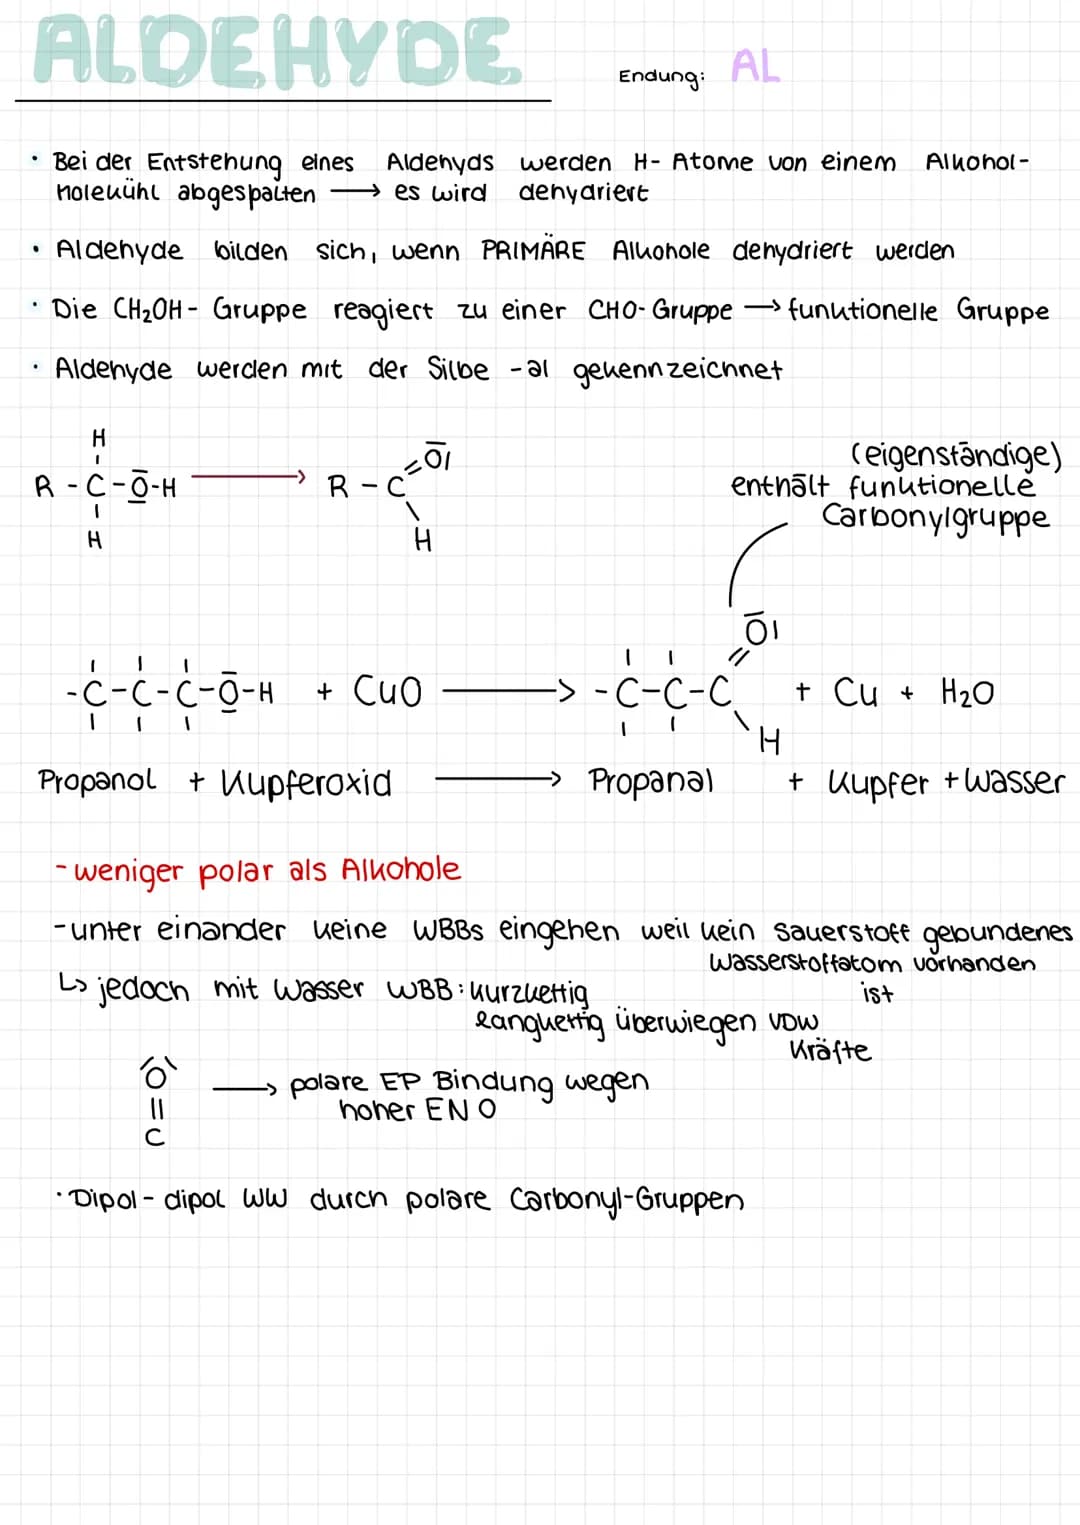 ALDEHYDE
Endung: AL
• Bei der Entstehung eines Aldehyds werden H-Atome von einem Alkohol-
molekühl abgespalten → es wird dehydriert
• Aldehyde bilden sich, wenn PRIMÄRE Alkohole dehydriert werden
• Die CH₂OH- Gruppe reagiert zu einer CHO-Gruppe → funktionelle Gruppe
• Aldehyde werden mit der Silbe -al gekennzeichnet
H
R - C - O - H → R - C = O
H H
(eigenständige)
enthält funktionelle
Carbonylgruppe
O
-C-C-C-O-H + CuO → -C-C-C + Cu + H₂O
H
Propanol + Kupferoxid → Propanal + Kupfer + Wasser
- weniger polar als Alkohole
- unter einander keine WBBs eingehen weil kein Sauerstoff gebundenes
Wasserstoffatom vorhanden
ist
↳ jedoch mit Wasser WBB: kurzkettig
langkettig überwiegen VDW
Kräfte
O
||
C
→ polare EP Bindung wegen
hoher EN O
• Dipol - dipol WW durch polare Carbonyl-Gruppen